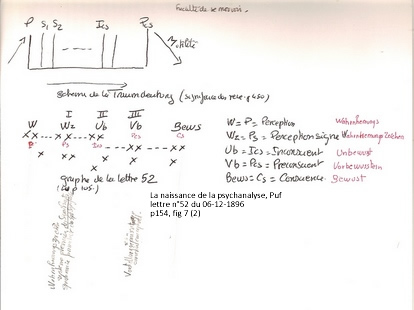 Faculté de se mouvoir.
P S1 S2 Ics Pcs
Motilité
Schema de la Traumdeutung (signifiance du reve p 450)
I II III
W Wz Ub Vb Bews
Pcs Cs
P Ps Ics
graphe de la lettre 52
W = P = Perception Wahrnehmungs
Wz = Ps = Perception signe Wahrnehmungszeichen
Ub = Ics = Inconscient Unbewust
Vb = Pcs = Preconscient Vorbewusstein
Bews = Cs = Conscience Bewust
La naissance de la psychanalyse, Puf
lettre n°52 du 06-12-1896
p154, fig 7 (2)